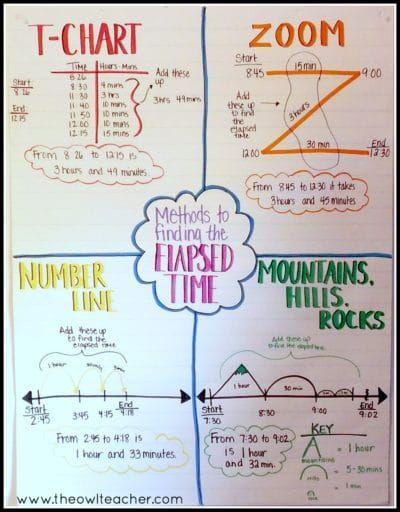 T-CHART
Time Hours-Mins
8:26
8:30 4 mins
11:30 3 hrs
11:40 10 mins
11:50 10 mins
12:00 10 mins
12:15 15 mins
Start
8:26
End
12:15
Add these
up
3 hrs 49 mins
From 8:26 to 12:15 is
3 hours and 49 minutes.
ZOOM
Start
8:45 15 min 9:00
Add these
up to find
the
elapsed
time
3 hours
30 min
12:00
End
12:30
From 8:45 to 12:30 it takes
3 hours and 45 minutes
Methods to
finding the
ELAPSED
TIME
NUMBER
LINE
Add these up
to find the
elapsed time
1 hour
Start
2:45
3:45
4:15
End
4:18
From 2:45 to 4:18 is
1 hour and 33 minutes.
MOUNTAINS,
HILLS,
ROCKS
Add these up
to find the elapsed time.
1 hour
30 min
Start
7:30
8:30
9:00
End
9:02
From 7:30 to 9:02
is 1 hour
and 32 min.
KEY
mountains = 1 hour
hills = 5-30 mins
rock = 1 min
www.theowlteacher.com